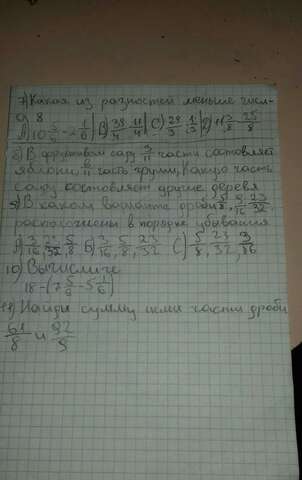 7) Какая из разностей меньше числ-
а 8
А) 10 5/6 - 2 1/6 B) 39/4 - 11/4 C) 29/3 - 1/3 D) 11 3/8 - 25/8
8) В фруктовом саду 3/11 части состовляет
яблони, 6/11 часть груши, какую часть
саду состовляют другие деревя
9) В каком варианте дроби 5/8, 3/16, 23/32
расположены в порядке убывания
А) 3/16, 23/32, 5/8 Б) 3/16, 5/8, 23/32 С) 5/8, 23/32, 3/16
10) Вычислите
18-(7 5/6 - 5 1/6)
11) Найди сумму целих части дроби
61/8 и 92/9